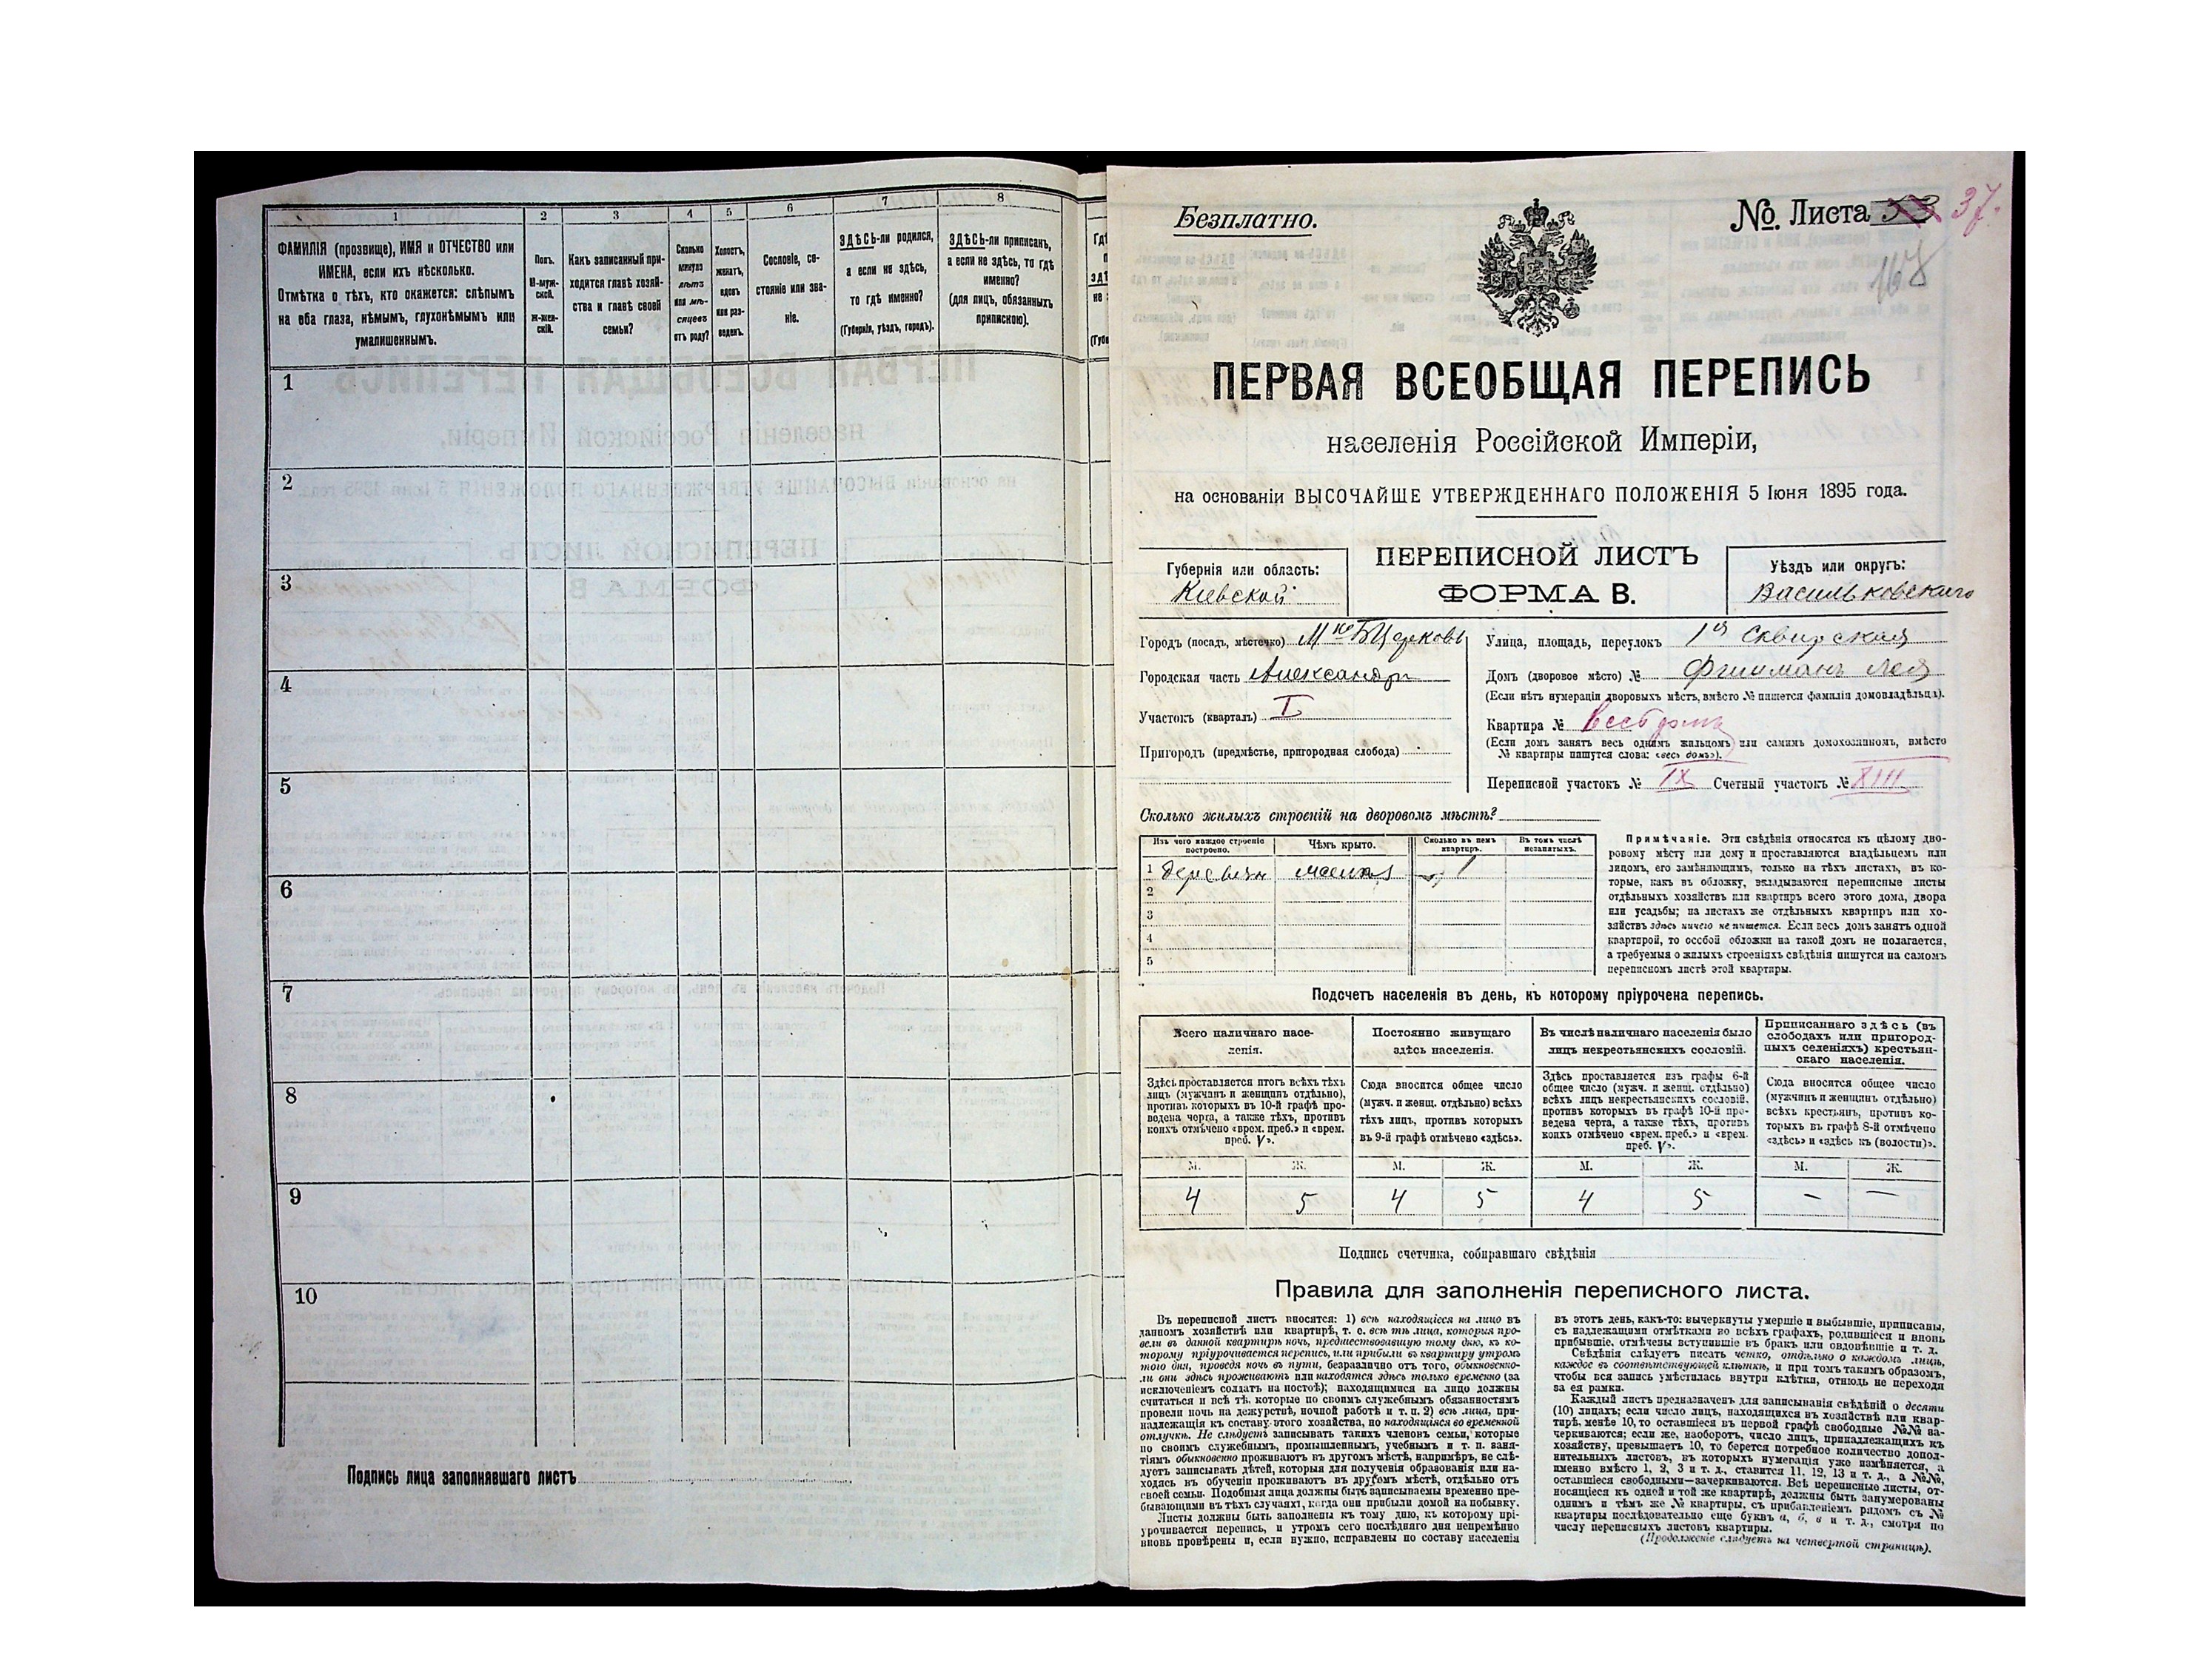 1
2
3
4
5
6
7
8
ФАМИЛІЯ (прозвище), ИМЯ и ОТЧЕСТВО или
ИМЕНА, если ихъ нѣсколько.
Отмѣтка о тѣхъ, кто окажется: слѣпымъ
на оба глаза, нѣмымъ, глухонѣмымъ или
умалишеннымъ.
Полъ.
М-муж-
ской.
Ж-жен-
скій.
Какъ записанный при-
ходится главѣ хозяй-
ства и главѣ своей
семьи?
Сколько
минуло
лѣтъ
или мѣ-
сяцевъ
отъ роду?
Холостъ,
женатъ,
вдовъ
или раз-
веденъ.
Сословіе, со-
стояніе или зва-
ніе.
ЗДѢСЬ-ли родился,
а если не здѣсь,
то гдѣ именно?
(Губернія, уѣздъ, городъ).
ЗДѢСЬ-ли приписанъ,
а если не здѣсь, то гдѣ
именно?
(для лицъ, обязанныхъ
припискою).
1
2
3
4
5
6
7
8
9
10
Подпись лица заполнявшаго листъ
Безплатно.
№. Листа 53 37.
168
ПЕРВАЯ ВСЕОБЩАЯ ПЕРЕПИСЬ
населенія Россійской Имперіи,
на основаніи ВЫСОЧАЙШЕ УТВЕРЖДЕННАГО ПОЛОЖЕНІЯ 5 Іюня 1895 года.
ПЕРЕПИСНОЙ ЛИСТЪ
ФОРМА В.
Губернія или область:
Кіевской
Уѣздъ или округъ:
Васильковскаго
Городъ (посадъ, мѣстечко) М-ко Б Церковь
Городская часть Александр
Участокъ (кварталъ) I
Пригородъ (предмѣстье, пригородная слобода)
Улица, площадь, переулокъ 1я Сквирская
Домъ (дворовое мѣсто) № Лея
(Если нѣтъ нумераціи дворовыхъ мѣстъ, вмѣсто № пишется фамилія домовладѣльца).
Квартира № весь домъ
(Если домъ занятъ весь однимъ жильцомъ или самимъ домохозяиномъ, вмѣсто
№ квартиры пишутся слова: «весь домъ»).
Переписной участокъ № IX Счетный участокъ № XIII
Сколько жилыхъ строеній на дворовомъ мѣстѣ?
Изъ чего каждое строеніе
построено.
Чѣмъ крыто.
Сколько въ немъ
квартиръ.
Въ томъ числѣ
незанятыхъ.
1 деревян 1
2
3
4
5
Примѣчаніе. Эти свѣдѣнія относятся къ цѣлому дво-
ровому мѣсту или дому и проставляются владѣльцемъ или
лицомъ, его замѣняющимъ, только на тѣхъ листахъ, въ ко-
торые, какъ въ обложку, вкладываются переписные листы
отдѣльныхъ хозяйствъ или квартиръ всего этого дома, двора
или усадьбы; на листахъ же отдѣльныхъ квартиръ или хо-
зяйствъ здѣсь ничего не пишется. Если весь домъ занятъ одной
квартирой, то особой обложки на такой домъ не полагается,
а требуемыя о жилыхъ строеніяхъ свѣдѣнія пишутся на самомъ
переписномъ листѣ этой квартиры.
Подсчетъ населенія въ день, къ которому пріурочена перепись.
Всего наличнаго насе-
ленія.
Постоянно живущаго
здѣсь населенія.
Въ числѣ наличнаго населенія было
лицъ некрестьянскихъ сословій.
Приписаннаго здѣсь (въ
слободахъ или пригород-
ныхъ селеніяхъ) крестьян-
скаго населенія.
Здѣсь проставляется итогъ всѣхъ тѣхъ
лицъ (мужчинъ и женщинъ отдѣльно),
противъ которыхъ въ 10-й графѣ про-
ведена черта, а также тѣхъ, противъ
коихъ отмѣчено «врем. преб.» и «врем.
преб. V».
Сюда вносится общее число
(мужч. и женщ. отдѣльно) всѣхъ
тѣхъ лицъ, противъ которыхъ
въ 9-й графѣ отмѣчено «здѣсь».
Здѣсь проставляется изъ графы 6-й
общее число (мужч. и женщ. отдѣльно)
всѣхъ лицъ некрестьянскихъ сословій,
противъ которыхъ въ графѣ 10-й про-
ведена черта, а также тѣхъ, противъ
коихъ отмѣчено «врем. преб.» и «врем.
преб. V».
Сюда вносится общее число
(мужчинъ и женщинъ отдѣльно)
всѣхъ крестьянъ, противъ ко-
торыхъ въ графѣ 8-й отмѣчено
«здѣсь» и «здѣсь къ (волости)».
М. Ж. М. Ж. М. Ж. М. Ж.
4 5 4 5 4 5 — —
Подпись счетчика, собиравшаго свѣдѣнія
Правила для заполненія переписного листа.
Въ переписной листъ вносятся: 1) всѣ находящіеся на лицо въ
данномъ хозяйствѣ или квартирѣ, т. е. всѣ тѣ лица, которыя про-
вели въ данной квартирѣ ночь, предшествовавшую тому дню, къ ко-
торому пріурочивается перепись, или прибыли въ квартиру утромъ
того дня, проведя ночь въ пути, безразлично отъ того, обыкновенно-
ли они здѣсь проживаютъ или находятся здѣсь только временно (за
исключеніемъ солдатъ на постоѣ); находящимися на лицо должны
считаться и всѣ тѣ, которые по своимъ служебнымъ обязанностямъ
провели ночь на дежурствѣ, ночной работѣ и т. п. 2) всѣ лица, при-
надлежащія къ составу этого хозяйства, но находящіяся во временной
отлучкѣ. Не слѣдуетъ записывать такихъ членовъ семьи, которые
по своимъ служебнымъ, промышленнымъ, учебнымъ и т. п. заня-
тіямъ обыкновенно проживаютъ въ другомъ мѣстѣ, напримѣръ, не слѣ-
дуетъ записывать дѣтей, которыя для полученія образованія или на-
ходясь въ обученіи проживаютъ въ другомъ мѣстѣ, отдѣльно отъ
своей семьи. Подобныя лица должны быть записываемы временно пре-
бывающими въ тѣхъ случаяхъ, когда они прибыли домой на побывку.
Листы должны быть заполнены къ тому дню, къ которому прі-
урочивается перепись, и утромъ сего послѣдняго дня непремѣнно
вновь провѣрены и, если нужно, исправлены по составу населенія
въ этотъ день, какъ-то: вычеркнуты умершіе и выбывшіе, приписаны,
съ надлежащими отмѣтками во всѣхъ графахъ, родившіеся и вновь
прибывшіе, отмѣчены вступившіе въ бракъ или овдовѣвшіе и т. д.
Свѣдѣнія слѣдуетъ писать четко, отдѣльно о каждомъ лицѣ,
каждое въ соотвѣтствующей клѣткѣ, и при томъ такимъ образомъ,
чтобы вся запись умѣстилась внутри клѣтки, отнюдь не переходя
за ея рамки.
Каждый листъ предназначенъ для записыванія свѣдѣній о десяти
(10) лицахъ; если число лицъ, находящихся въ хозяйствѣ или квар-
тирѣ, менѣе 10, то оставшіеся въ первой графѣ свободные №№ за-
черкиваются; если же, наоборотъ, число лицъ, принадлежащихъ къ
хозяйству, превышаетъ 10, то берется потребное количество допол-
нительныхъ листовъ, въ которыхъ нумерація уже измѣняется, а
именно вмѣсто 1, 2, 3 и т. д., ставится 11, 12, 13 и т. д., а №№,
оставшіеся свободными—зачеркиваются. Всѣ переписные листы, от-
носящіеся къ одной и той же квартирѣ, должны быть занумерованы
однимъ и тѣмъ же № квартиры, съ прибавленіемъ рядомъ съ №
квартиры послѣдовательно еще буквъ а, б, в и т. д., смотря по
числу переписныхъ листовъ квартиры.
(Продолженіе слѣдуетъ на четвертой страницѣ).